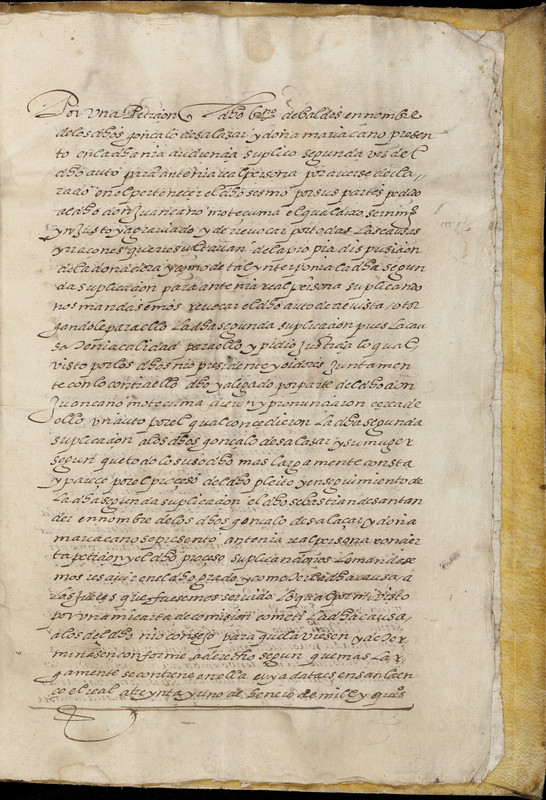 Por una Petiçion q dho de baldes en nombre
de los dhos gonçalo de salasar y doña maria cano presen
to en la dha nra audiençia suplico segunda ves del
dho auto para ante nra real persona por averse decla
rado en el perteneçer el dho sesmo por sus partes pedido
al dho don Juan cano moteçuma el qual dixo ser nin
ynjusto y agraviado y de revocar por todas las causas
y raçones que resultavan de la propia dispusiçion
de la donadora y como de tal ynterponia la dha segun
da suplicaçion para ante nra real persona suplicando
nos mandasemos revocar el dho auto de revista otor
gandole para ello la dha segunda suplicaçion pues la cau
sa tenia calidad para ello y pidio justiçia lo qual
visto por los dhos nro presidente y oidores juntamen
te con lo contra ello dho y alegado por parte del dho don
Juan cano moteçuma dieron y pronunçiaron çerca de
ello un auto por el qual conçedieron la dha segunda
suplicaçion a los dhos gonçalo de salasar y su muger
segun que todo lo susodho mas largamente consta
y pareçe por el proçeso del dho pleito y en seguimiento de
la dha segunda suplicaçion el dho sebastian de santan
der en nombre de los dhos gonçalo de salaçar y doña
maria cano se presento ante nra real persona con çier
ta petiçion y el dho proçeso suplicandonos le mandase
mos resçivir en el dho grado y cometer la dha causa a
los jueçes que fuesemos servido lo qual por mi visto
por una mi carta de comision cometi la dha causa
a los del dho nro consejo para que la viesen y deter
minasen conforme a derecho segun que mas lar
gamente se contiene en ella cuya data es en san loren
ço el real a treynta y uno de henero de mill y quis